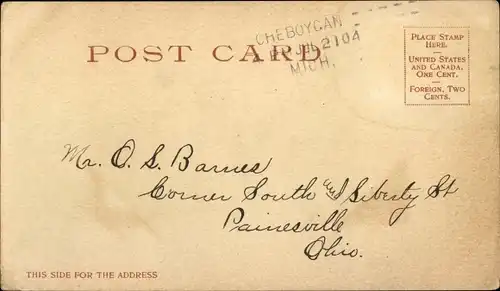 POST CARD
CHEBOYGAN
JUL 2104
MICH.
PLACE STAMP
HERE.
UNITED STATES
AND CANADA,
ONE CENT.
FOREIGN, TWO
CENTS.
Mr. O. S. Barnes
Corner South and Liberty St
Painesville
Ohio.
THIS SIDE FOR THE ADDRESS